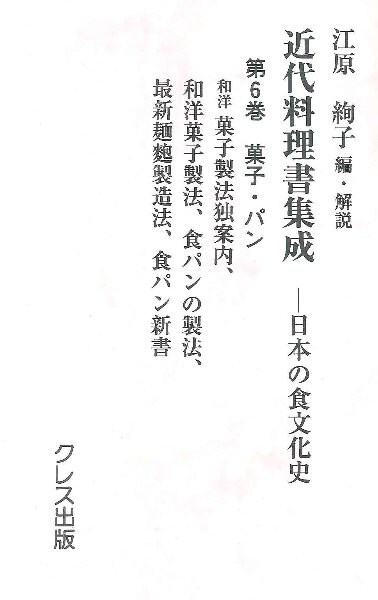 江原 絢子 編・解説
近代料理書集成 ―日本の食文化史
第6巻 菓子・パン
和洋 菓子製法独案内、
和洋菓子製法、食パンの製法、
最新麺麭製造法、食パン新書
クレス出版